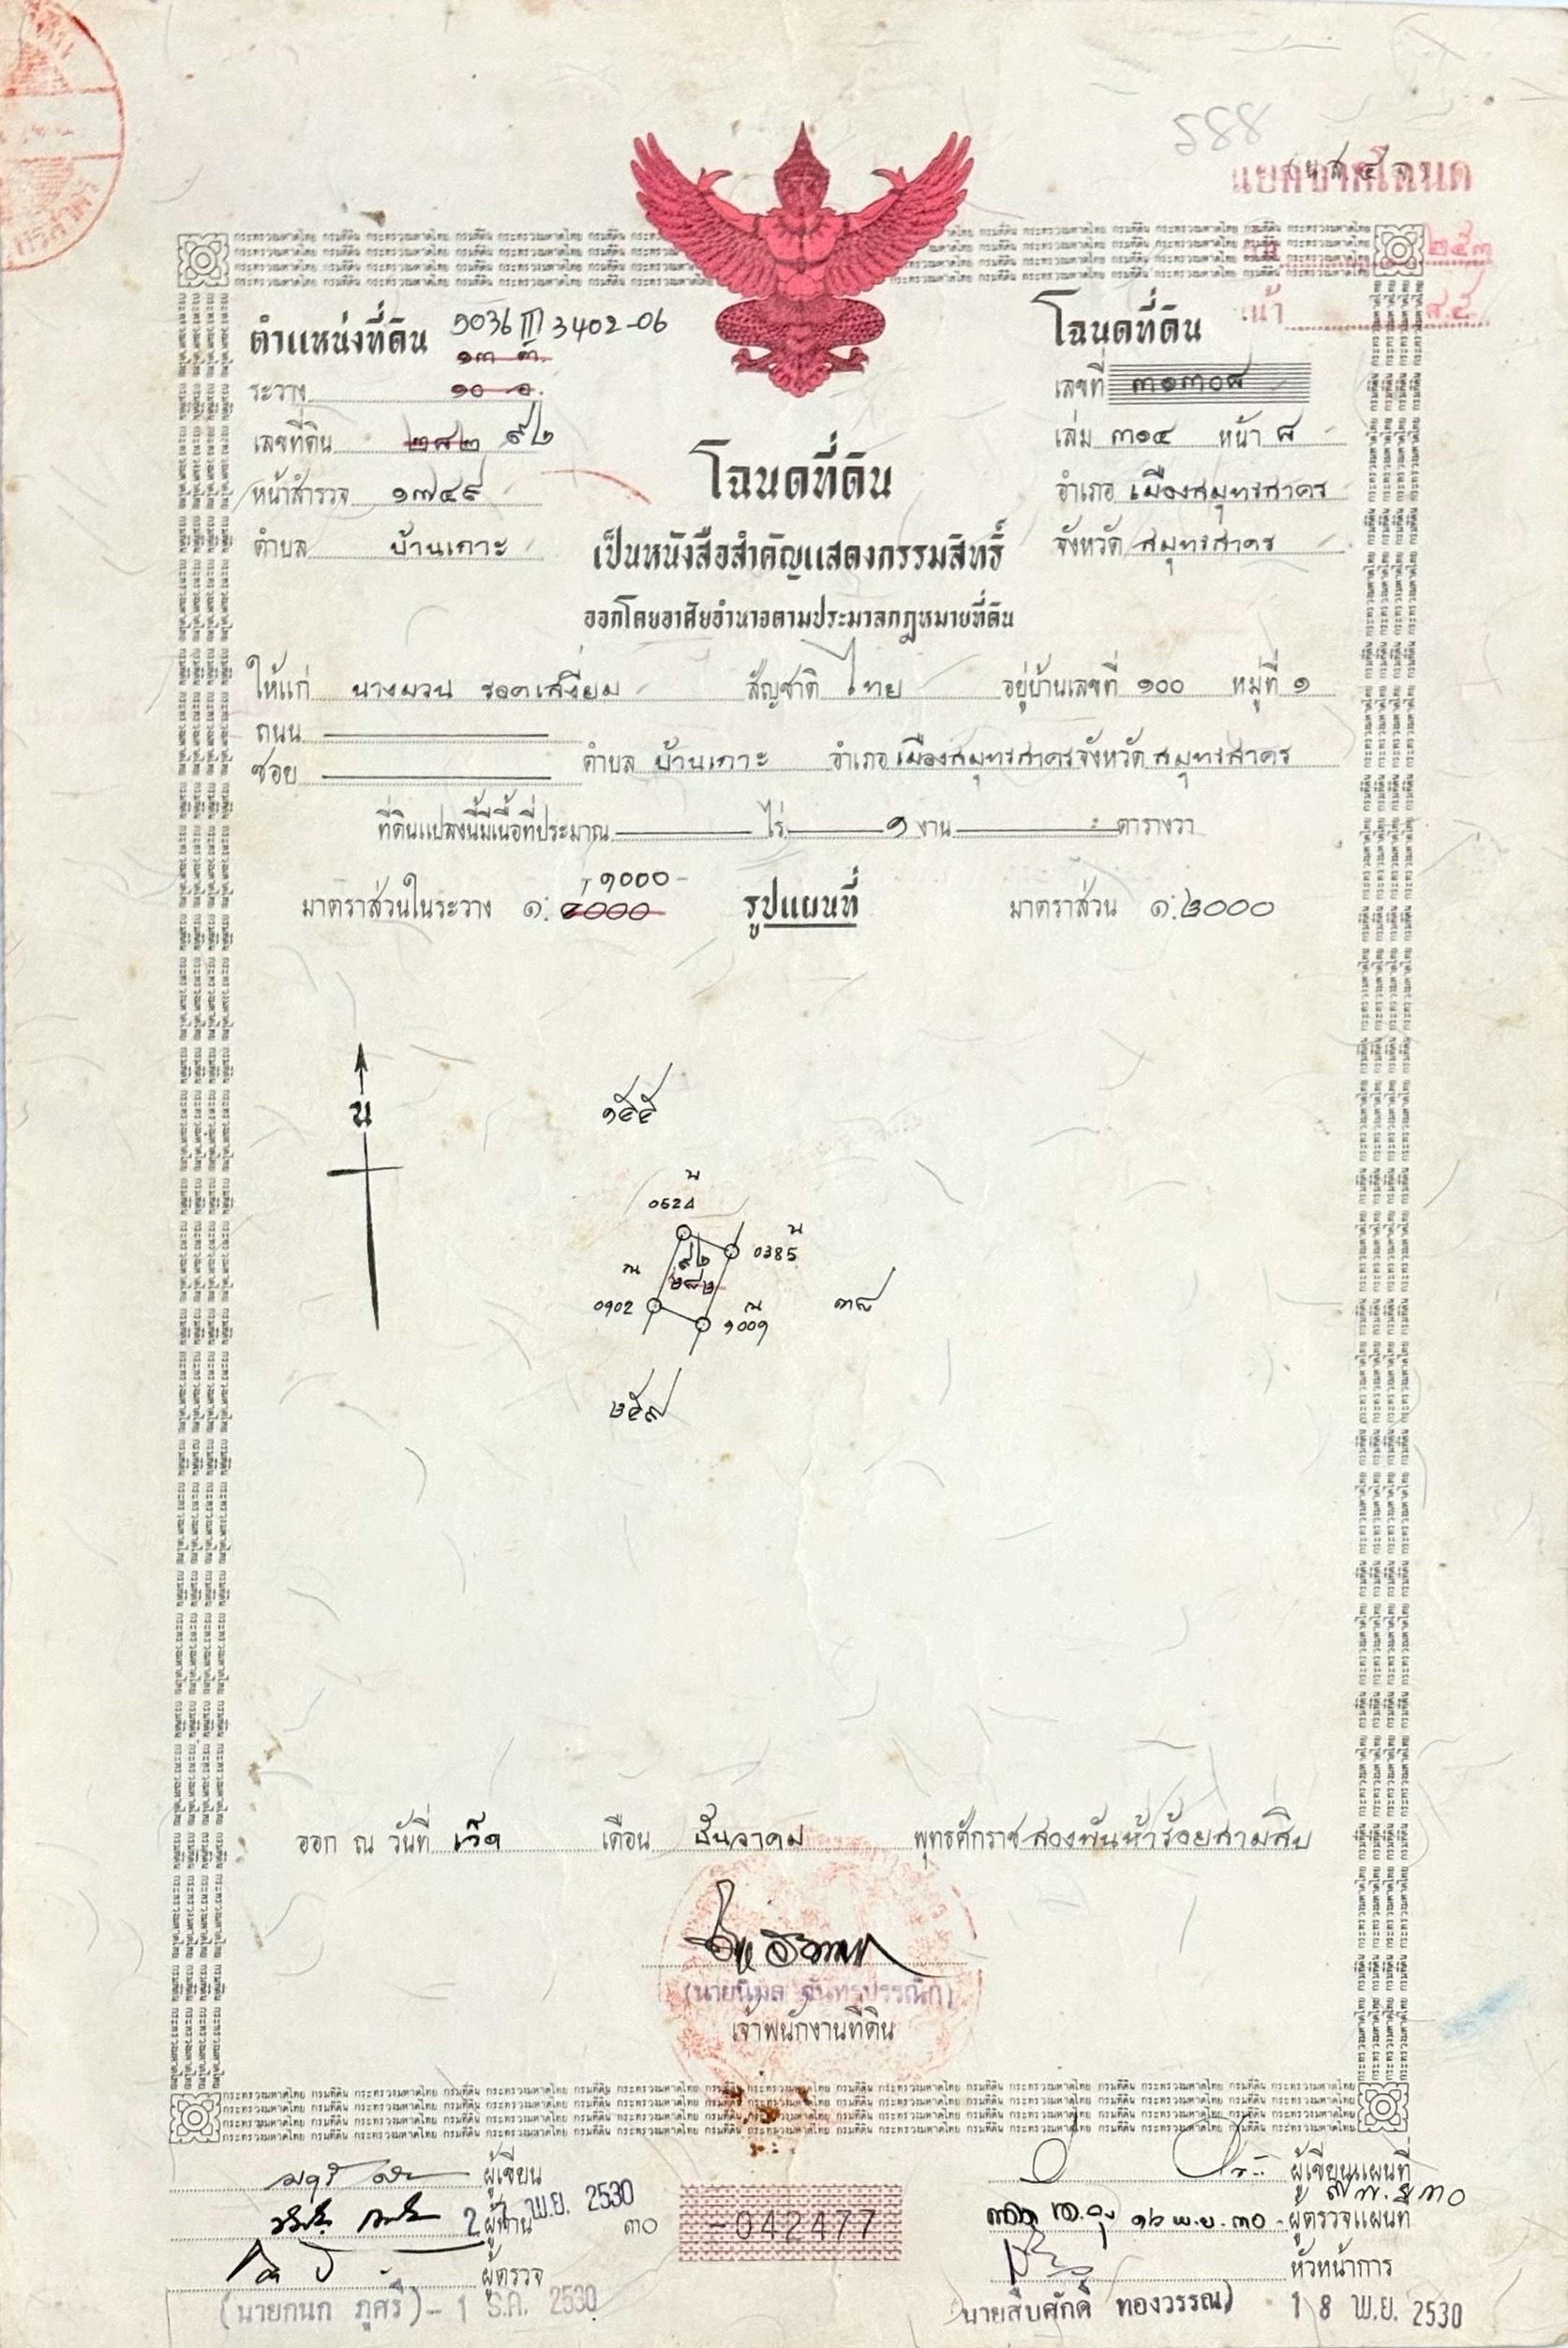 588
แยกจากโฉนด
๒๕๓
หน้า
ตำแหน่งที่ดิน 5036 III 3402-06
๑๓ ต.
ระวาง ๑๐ อ.
เลขที่ดิน ๒๘๒ ๙๒
หน้าสำรวจ ๑๗๔๙
ตำบล บ้านเกาะ
โฉนดที่ดิน
เลขที่ ๓๑๓๐๘
เล่ม ๓๑๔ หน้า ๘
อำเภอ เมืองสมุทรสาคร
จังหวัด สมุทรสาคร
โฉนดที่ดิน
เป็นหนังสือสำคัญแสดงกรรมสิทธิ์
ออกโดยอาศัยอำนาจตามประมวลกฎหมายที่ดิน
ให้แก่ นางผวน รอดเสงี่ยม สัญชาติ ไทย อยู่บ้านเลขที่ ๑๐๐ หมู่ที่ ๑
ถนน
ซอย ตำบล บ้านเกาะ อำเภอ เมืองสมุทรสาคร จังหวัด สมุทรสาคร
ที่ดินแปลงนี้มีเนื้อที่ประมาณ ไร่ ๑ งาน ตารางวา
๑๐๐๐
มาตราส่วนในระวาง ๑:๔๐๐๐ รูปแผนที่ มาตราส่วน ๑:๒๐๐๐
น
๑๕๕
น
0524
น
0385
๙๒
๒๘๒
ณ
0902
ณ
๑00๑
๓๘
๒๕๗
ออก ณ วันที่ เจ็ด เดือน ธันวาคม พุทธศักราช สองพันห้าร้อยสามสิบ
(นายนิมล จันทรปรรณิก)
เจ้าพนักงานที่ดิน
ผู้เขียน
พ.ย. 2530
ผู้ทาน ๓๐
ผู้ตรวจ
(นายกนก ภูศรี) -1 ธ.ค. 2530
-042477
ผู้เขียนแผนที่
๑๖ พ.ย. ๓๐ ผู้ตรวจแผนที่
หัวหน้าการ
นายสืบศักดิ์ ทองวรรณ) 18 พ.ย. 2530